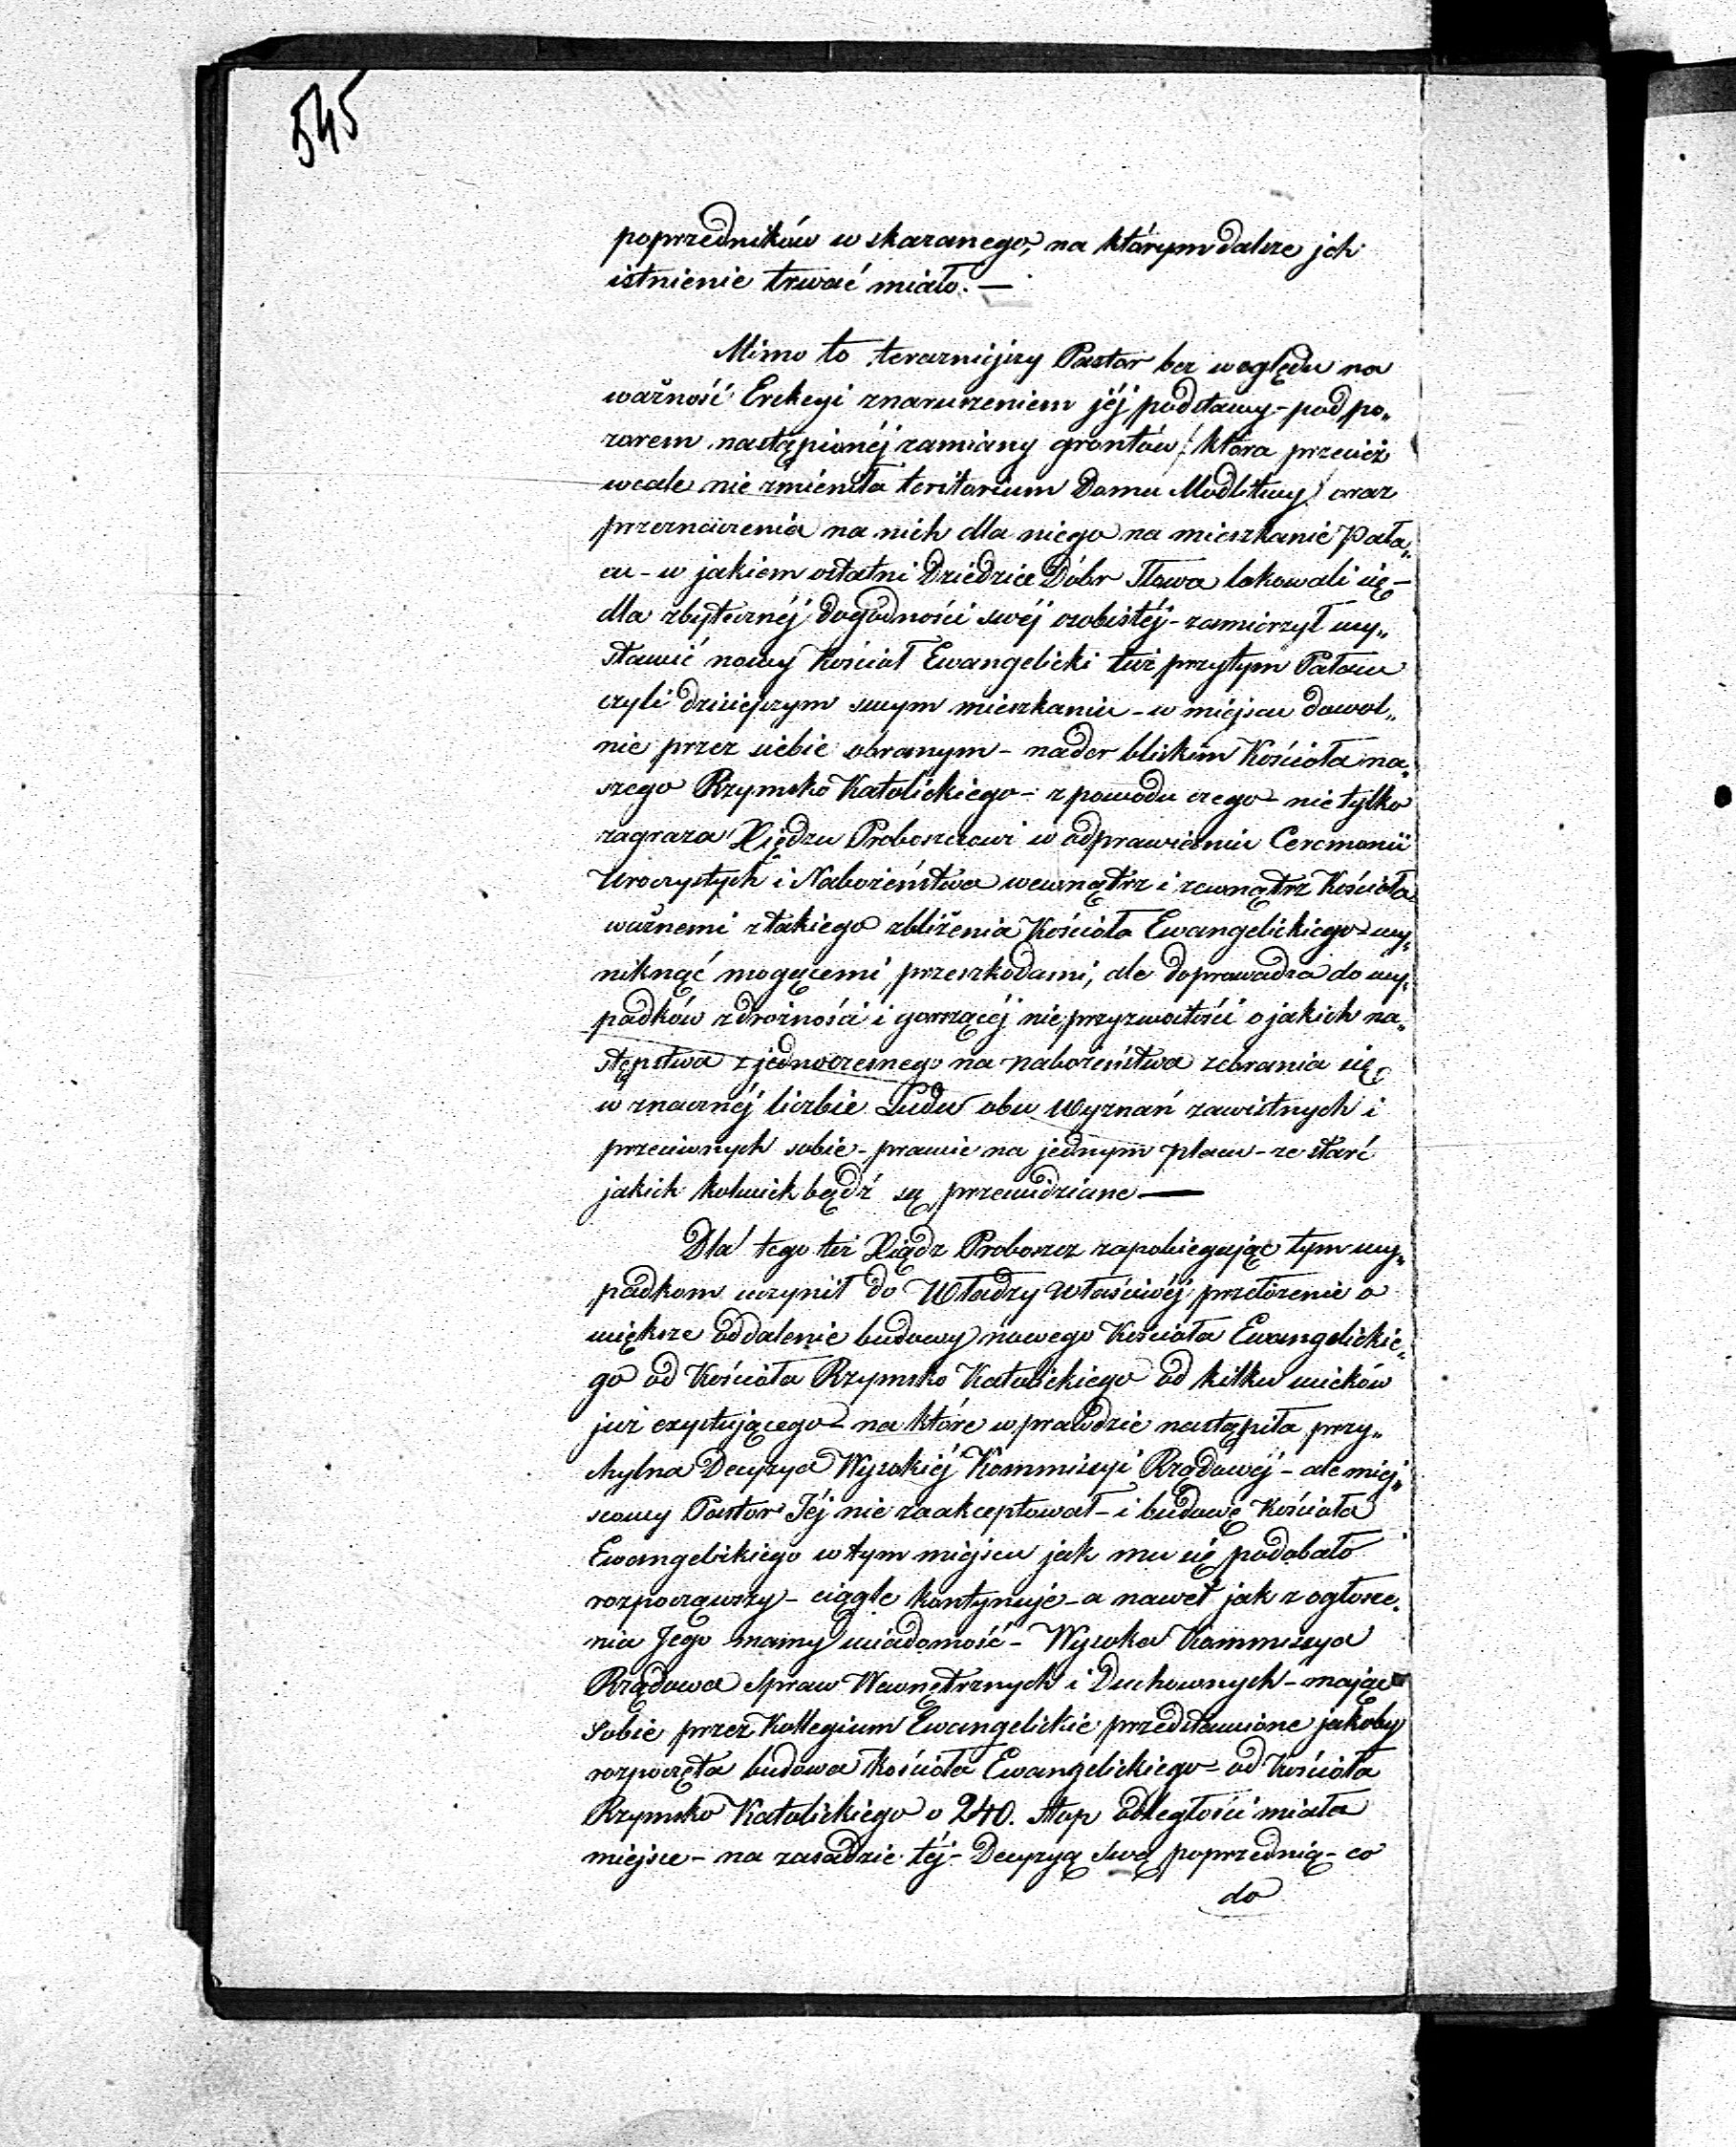 545
poprzedników wskazanego, na którym dalsze ich
istnienie trwać miało. —
Mimo to terazniejszy Pastor bez względu na
ważność Erekcyi znaruszeniem jéj podstawy - pod po„
zorem nastąpionéj zamiany grontów /: która przecież
wcale nie zmieniła teritorium Domu Modlitwy / oraz
przeznaczenia na nich dla niego na mieszkanie Pała„
cu - w jakiem ostatni Dziedzice Dóbr Iłowa lokowali się -
dla zbytecznéj dogodności swéj osobistéj - zamierzył wy„
stawić nowy Kościoł Ewangelicki tuż przytym Pałacu
czyli dzisiejszym swym mieszkaniu - w miejscu dowol„
nie przez siebie obranym - nader bliskim Kościoła na„
szego Rzymsko Katolickiego - z powodu czego - nie tylko
zagraża Xiędzu Proboszczowi w odprawieniu Ceremonii
Uroczystych i Nabożeństwa wewnątrz i zewnątrz Kościoła
ważnemi z takiego zbliżenia Kościoła Ewangelickiego wy„
niknąć mogącemi przeszkodami, ale doprowadza do wy„
padków zdrożności i gorszącéj nieprzyzwoitości o jakich na„
stępstwa z jednoczesnego na nabożeństwa zebrania się
w znacznéj liczbie Ludu obu Wyznań zawistnych i
przeciwnych sobie - prawie na jednym placu - ze starć
jakich kolwiek bądź są przewidziane —
Dla tego też Xiądz Proboszcz zapobiegając tym wy„
padkom uczynił do Władzy właściwéj przełożenie o
większe oddalenie budowy nowego Kościoła Ewangelickie„
go od Kościoła Rzymsko Katolickiego od kilku wieków
już exystującego - na które wprawdzie nastąpiła przy„
chylna Decyzya Wysokiéj Kommissyi Rządowéj - ale miej„
scowy Pastor Jéj nie zaakceptował - i budowę Kościoła
Ewangelickiego w tym miejscu jak mu się podobało
rozpocząwszy - ciągle kontynuje - a nawet jak z ogłosze„
nia Jego mamy wiadomość - Wysoka Kommissya
Rządowa Spraw Wewnętrznych i Duchownych - mając
sobie przez Kollegium Ewangelickie przedstawione jakoby
rozpoczęta budowa kościoła Ewangelickiego - od Kościoła
Rzymsko Katolickiego o 240. Stop odległości miała
miejsce - na zasadzie téj - Decyzyą Swą poprzednią - co
do